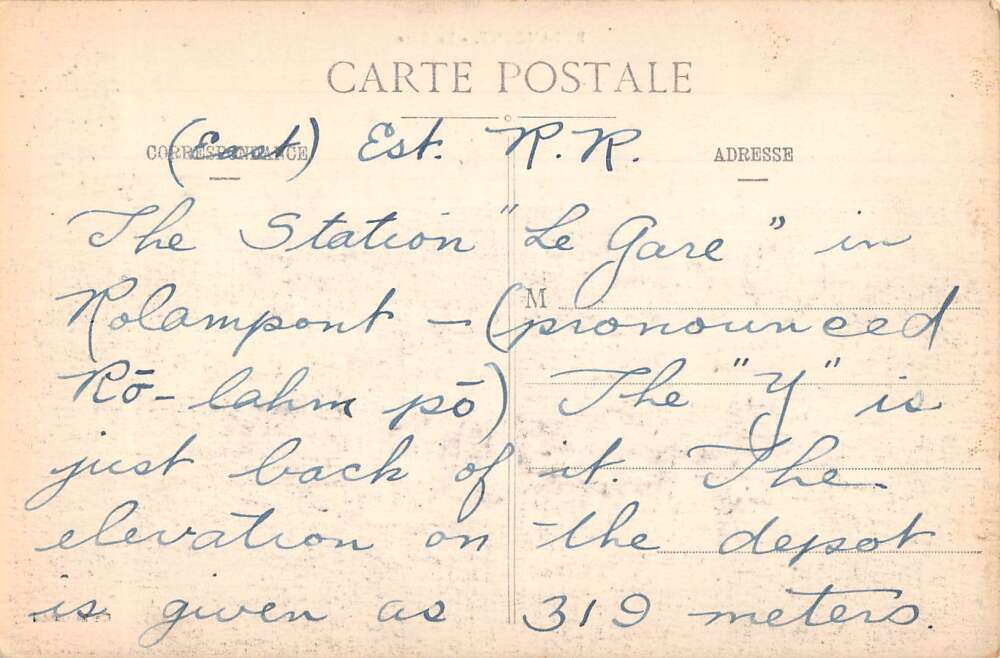 CARTE POSTALE
CORRESPONDANCE
ADRESSE
(East) Est. R.R.
The Station "Le Gare" in
M
Rolampont - (pronounced
Rō-lahm pō) The "Y" is
just back of it. The
elevation on the depot
is given as 319 meters.